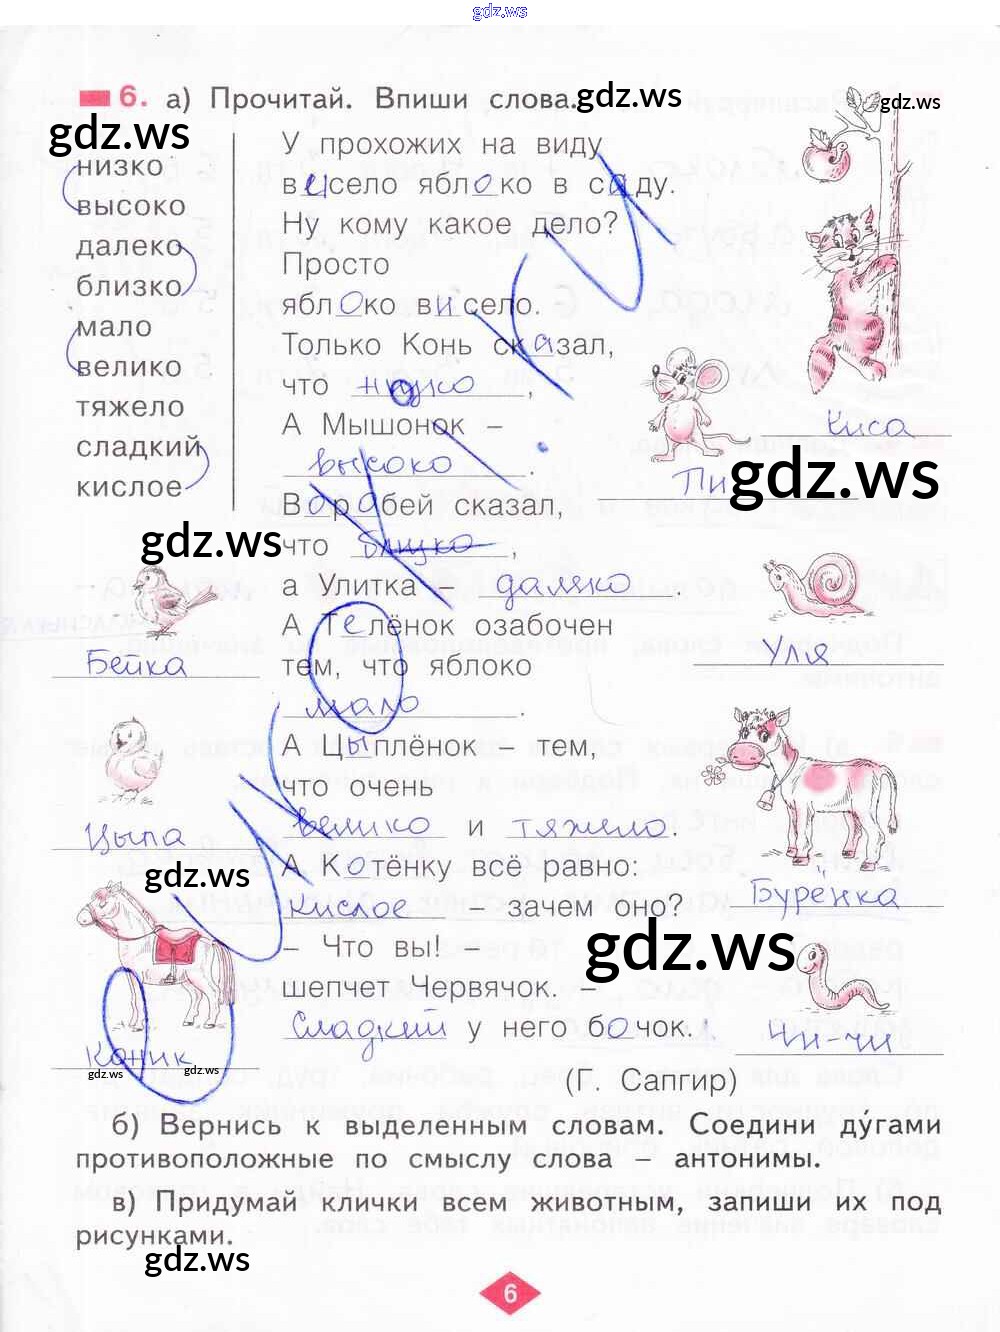 gdz.ws
6. а) Прочитай. Впиши слова.
gdz.ws
gdz.ws
gdz.ws
низко
высоко
далеко
близко
мало
велико
тяжело
сладкий
кислое
У прохожих на виду
висело яблоко в саду.
Ну кому какое дело?
Просто
яблоко висело.
Только Конь сказал,
что низко,
А Мышонок –
высоко.
Воробей сказал,
что близко,
а Улитка – далеко.
А Телёнок озабочен
тем, что яблоко
мало.
А Цыплёнок – тем,
что очень
велико и тяжело.
А Котёнку всё равно:
кислое – зачем оно?
– Что вы! –
шепчет Червячок. –
Сладкий у него бочок.
(Г. Сапгир)
Киса
Пи
gdz.ws
gdz.ws
Бейка
Уля
Цыпа
gdz.ws
Бурёнка
gdz.ws
Коник
gdz.ws
gdz.ws
Чи-чи
б) Вернись к выделенным словам. Соедини ду́гами
противоположные по смыслу слова – антонимы.
в) Придумай клички всем животным, запиши их под
рисунками.
gdz.ws
6